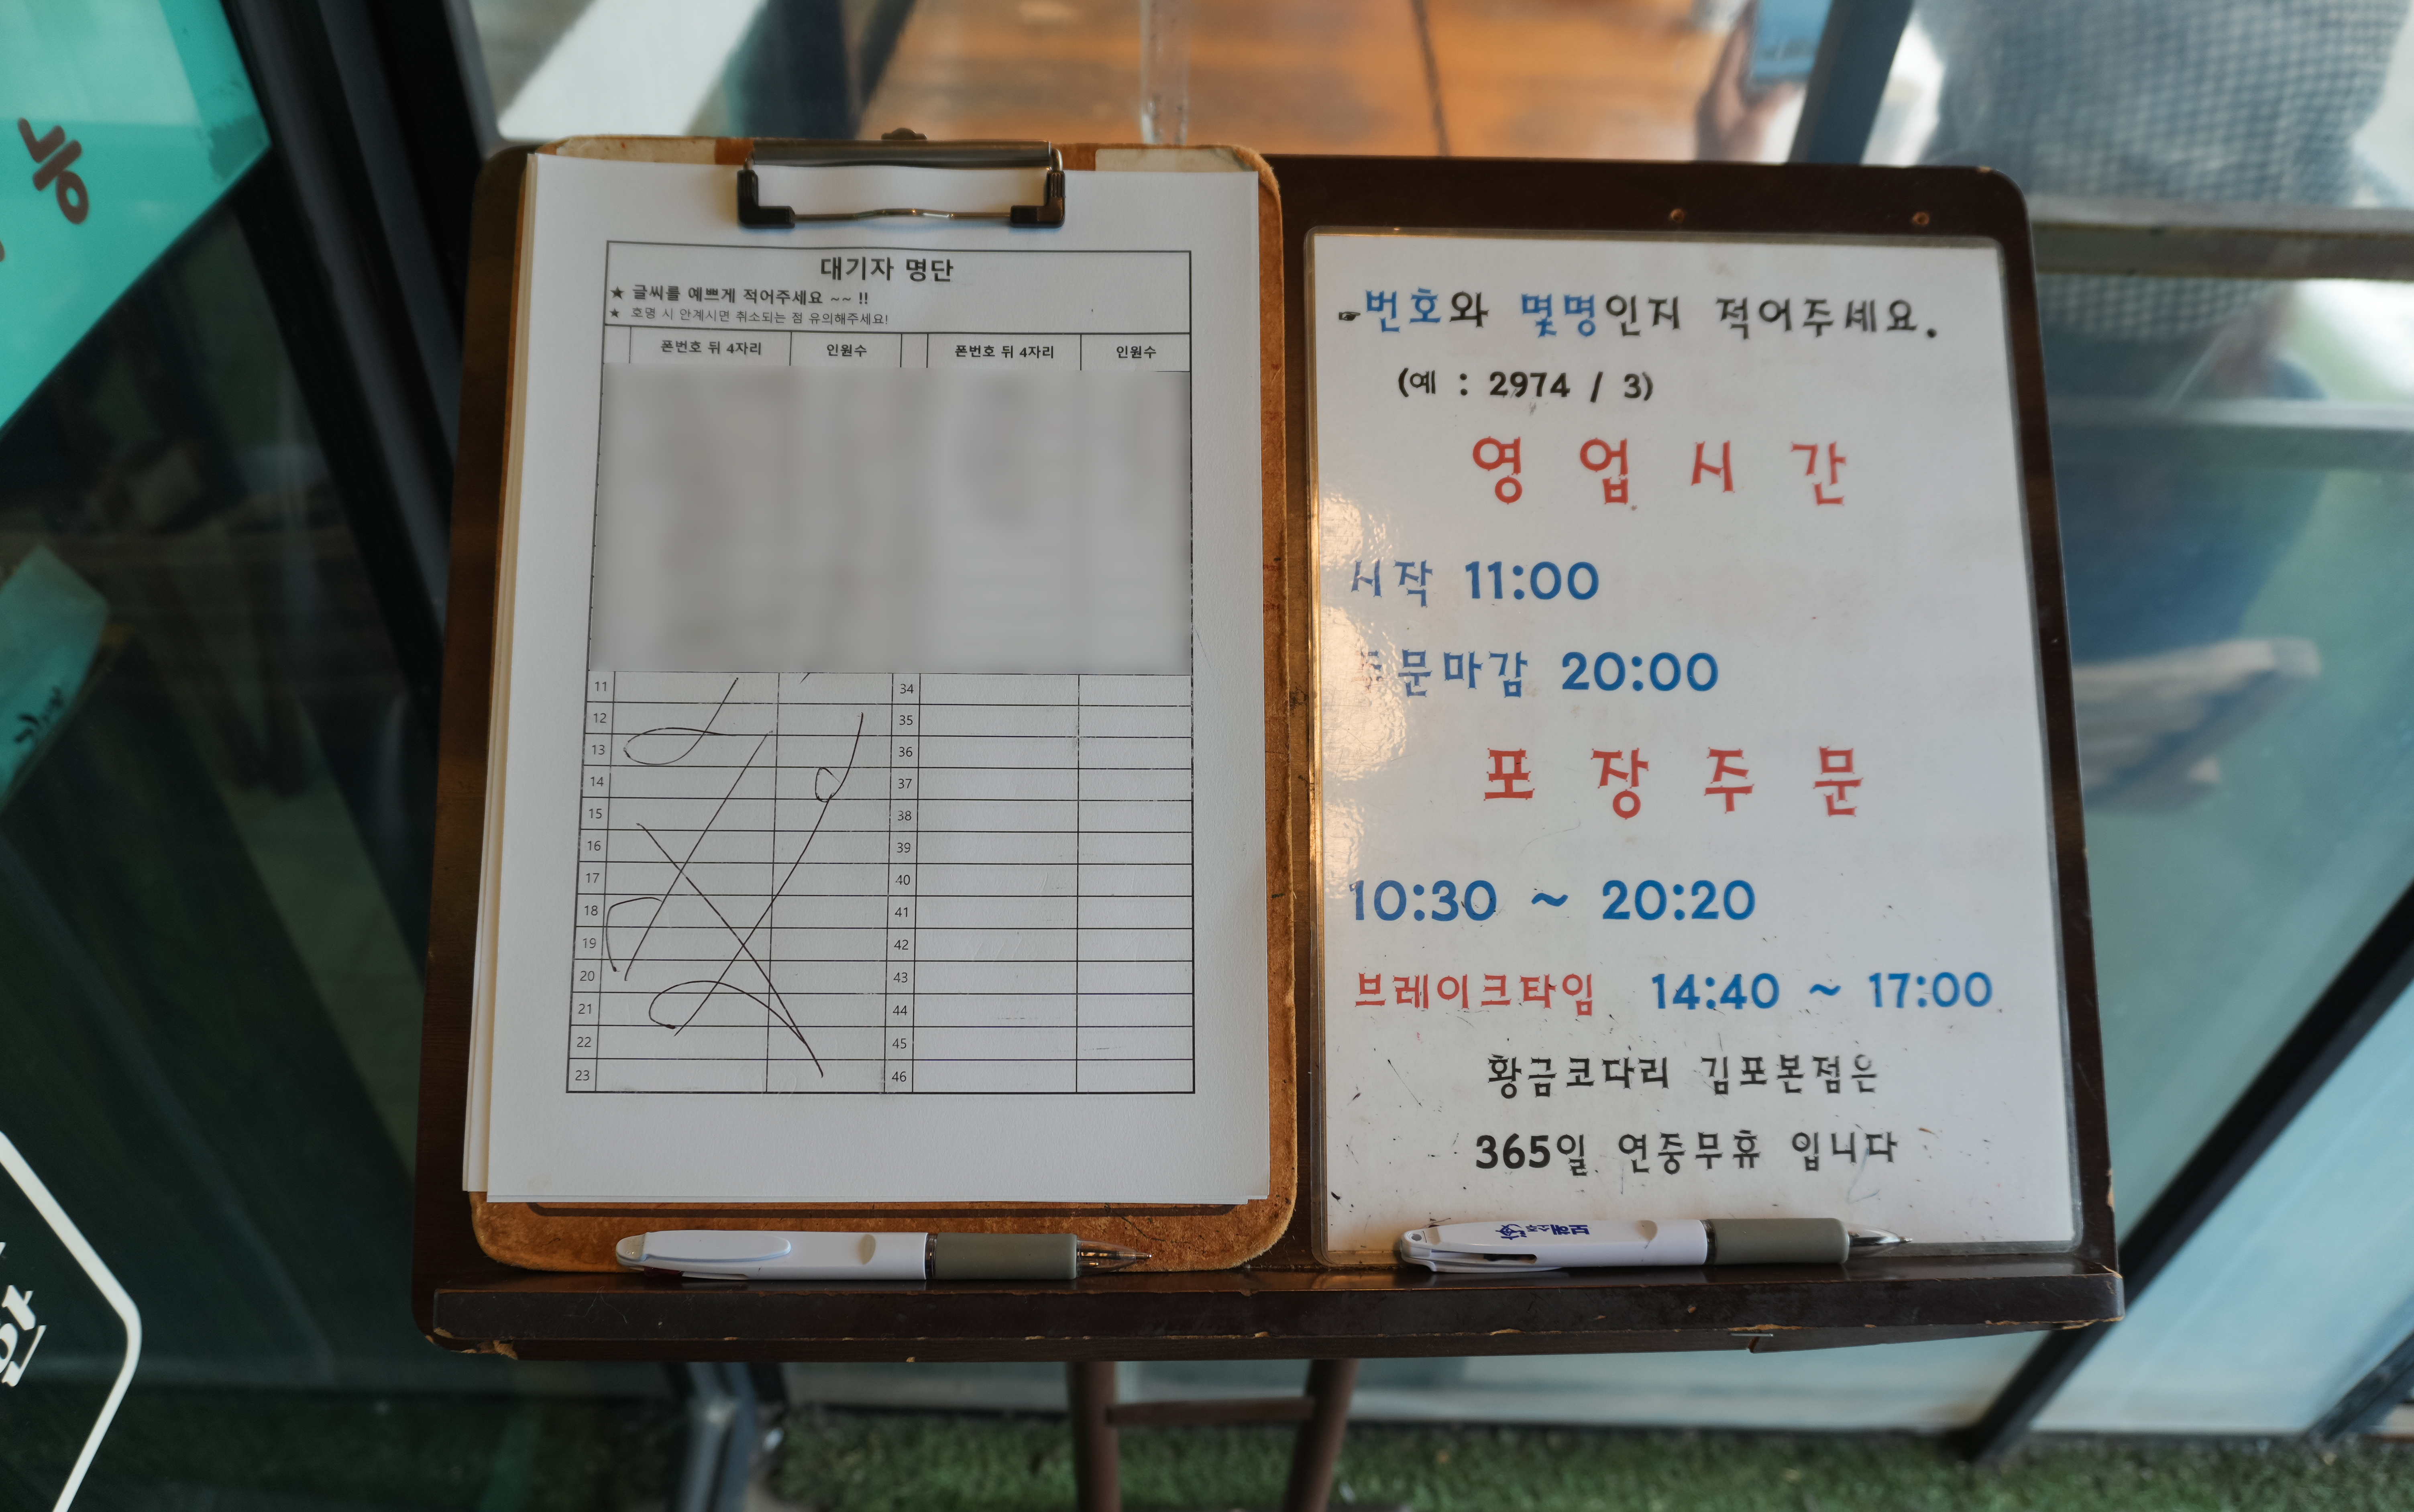 능
대기자 명단
★ 글씨를 예쁘게 적어주세요 ~~ !!
★ 호명 시 안계시면 취소되는 점 유의해주세요!
폰번호 뒤 4자리 인원수 폰번호 뒤 4자리 인원수
11 34
12 35
13 36
14 37
15 38
16 39
17 40
18 41
19 42
20 43
21 44
22 45
23 46
☞번호와 몇명인지 적어주세요.
(예 : 2974 / 3)
영 업 시 간
시작 11:00
주문마감 20:00
포 장 주 문
10:30 ~ 20:20
브레이크타임 14:40 ~ 17:00
황금코다리 김포본점은
365일 연중무휴 입니다
보해소주